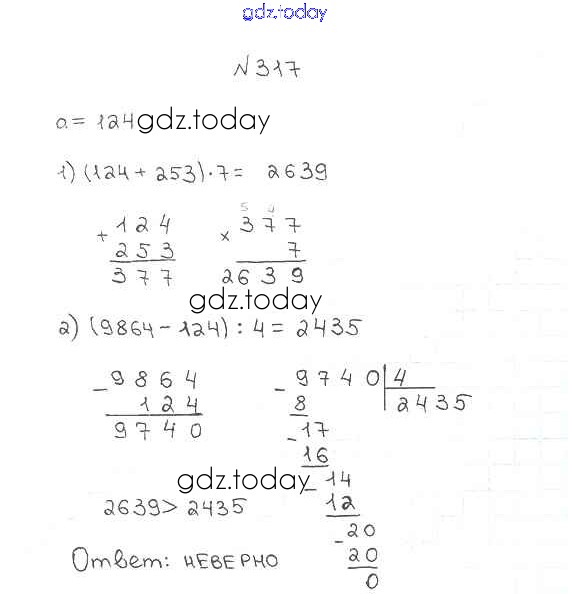 gdz.today
N317
a = 124 gdz.today
1) (124 + 253) · 7 = 2639
+ 124
253
377
5 4
× 377
7
2639
gdz.today
2) (9864 - 124) : 4 = 2435
- 9864
124
9740
- 9740 | 4
8 2435
- 17
16
gdz.today
- 14
12
2639 > 2435
- 20
20
0
Ответ: НЕВЕРНО